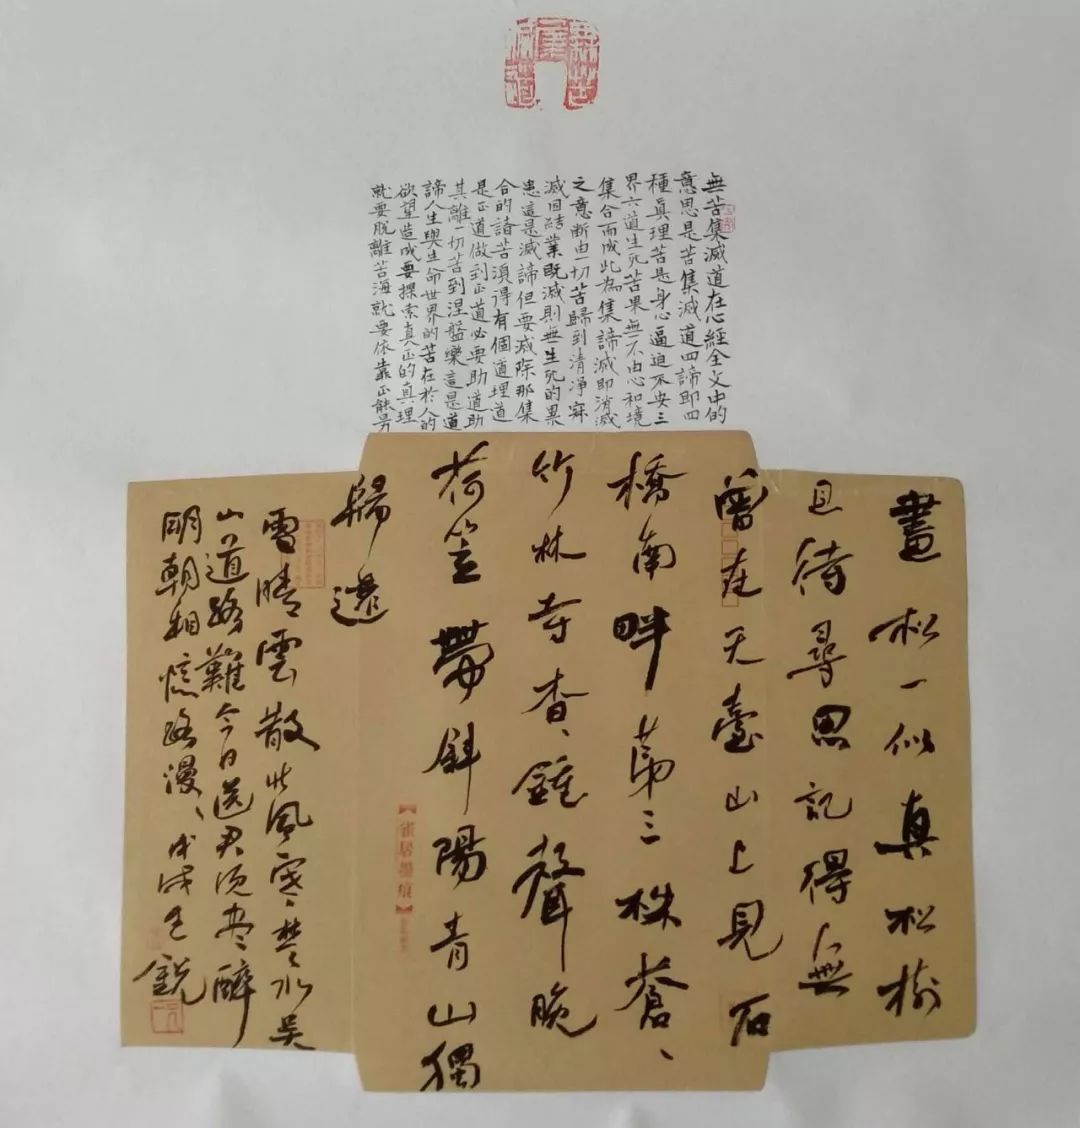 無苦集滅道在心經全文中的
意思是苦集滅道四諦即四
種真理苦是身心逼迫不安三
界六道生死苦果無不由心和境
集合而成此為集諦滅即消滅
之意斷由一切苦歸到清凈寂
滅因結業既滅則無生死的累
患這是滅諦但要滅除那集
合的諸苦須得有個道理道
是正道做到正道必要助道助
其離一切苦到涅盤樂這是道
諦人生與生命世界的苦在於人的
欲望造成要探索真正的真理
就要脫離苦海就要依靠正能量
畫松一似真松樹
且待尋思記得無
曾在天臺山上見石
橋南畔第三株蒼、
竹林寺杳、鍾聲晚
荷笠帶斜陽青山獨
歸遠
雪晴雲散北風寒、楚水吳
山道路難今日送君須盡醉
明朝相憶路漫、戊戌銳